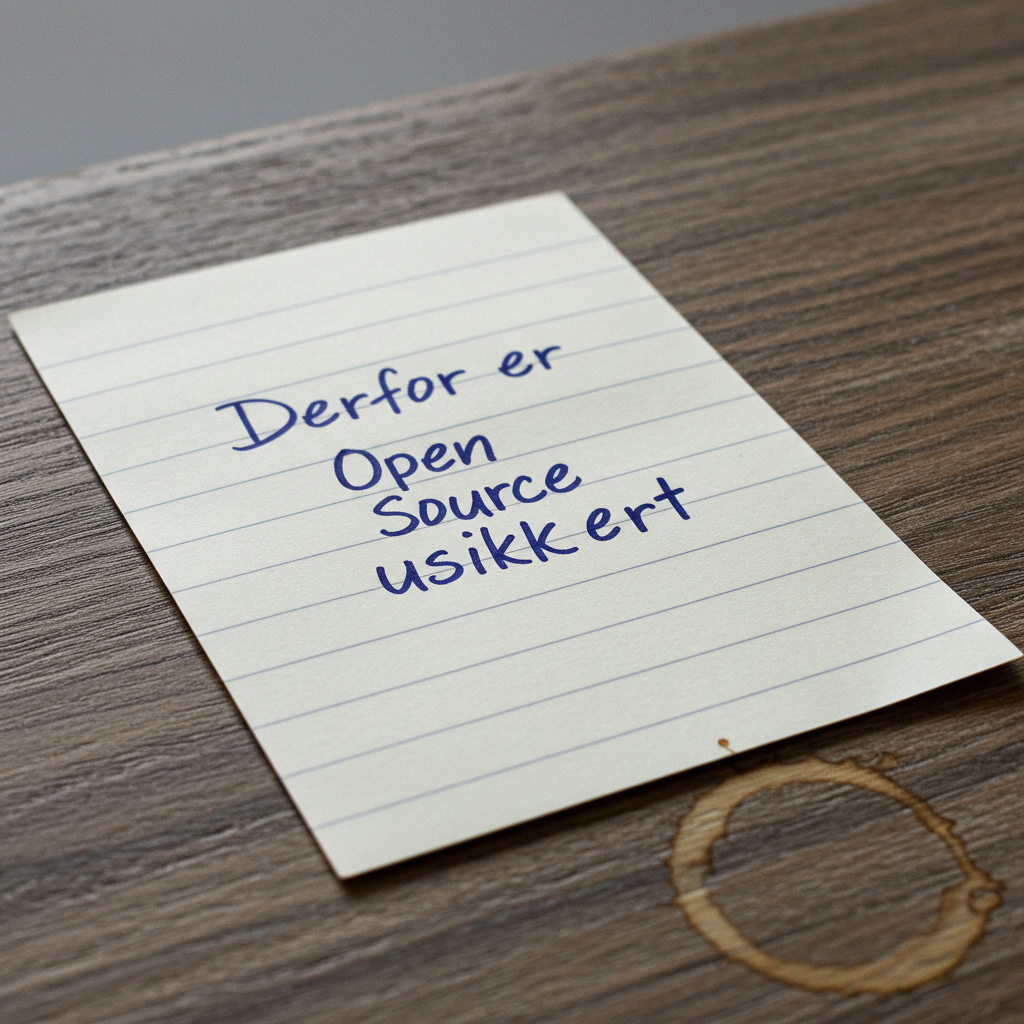 Derfor er
Open
Source
usikkert